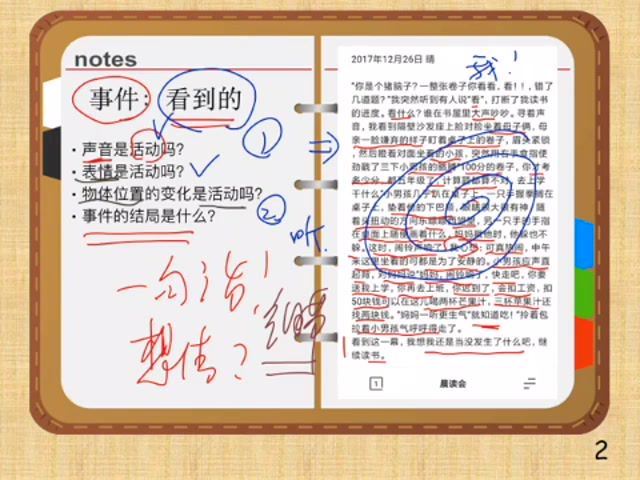 notes
事件：看到的
• 声音是活动吗？
• 表情是活动吗？
• 物体位置的变化是活动吗？
• 事件的结局是什么？
①
②
一句话！
想借？
2017年12月26日 晴
我！
"你是个猪脑子？一整张卷子你看看，看！！，错了
几道题？"我突然听到有人说"看"，打断了我读书
的进度。看什么？谁在书屋里大声吵吵。寻着声
音，我看到隔壁沙发座上脸对脸坐着母子俩，母
亲一脸嫌弃的样子盯着桌子上的卷子，眉头紧锁
，然后瞪着对面坐着的小孩，突然用右手食指使
劲戳了三下小男孩的脑门"100分的卷子，你才考
多少分，都五年级了，计算题都算不
干什么"小男孩几乎趴在桌子上，一只手握拳撑在
桌子上，垫着他的下巴颏，眼
着头扭动的方向东瞅瞅西望望，另一只手的手指
在桌面上随便画着什么，妈妈戳他时，他躲也不
躲。这时，闹铃声响了，我心想：可真热闹，中午
来这里坐着的可都是为了安静的。小男孩应声直
起身，对妈妈说"妈妈，闹铃响了，快走吧，你要
送我上学，你再去上班，你迟到了，会扣工资，扣
50块钱可以在这儿喝两杯芒果汁，三杯苹果汁还
找两块钱。"妈妈一听更生气"就知道吃！"拎着包
拉着小男孩气呼呼得走了。
看到这一幕，我想我还是当没发生了什么吧，继
续读书。
1
晨读会
2